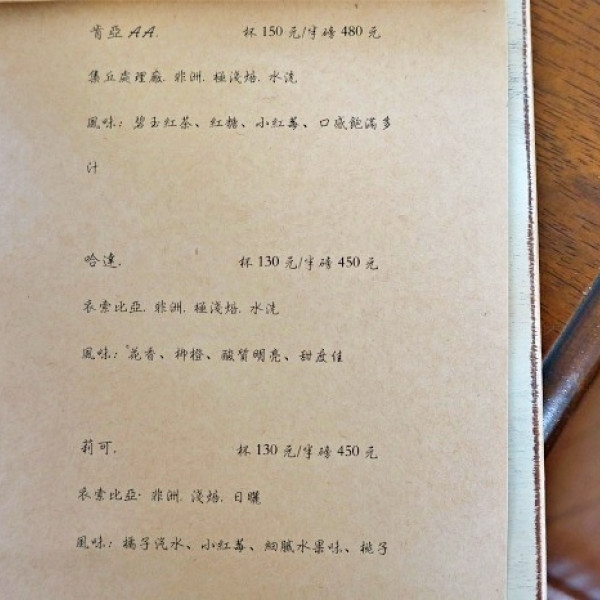 肯亞 AA. 杯 150 元/半磅 480 元
集丘處理廠. 非洲. 極淺焙. 水洗
風味：碧玉紅茶、紅糖、小紅莓、口感飽滿多
汁
哈達. 杯 130 元/半磅 450 元
衣索比亞. 非洲. 極淺焙. 水洗
風味：花香、柳橙、酸質明亮、甜度佳
莉可. 杯 130 元/半磅 450 元
衣索比亞. 非洲. 淺焙. 日曬
風味：橘子汽水、小紅莓、細膩水果味、桃子